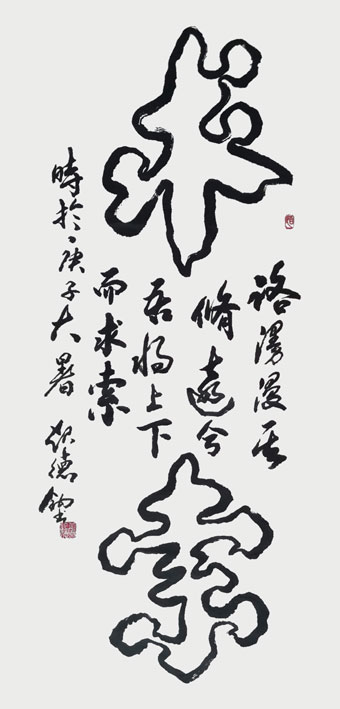 求
路漫漫其
脩遠兮
吾将上下
而求索
索
時於庚子大暑 德